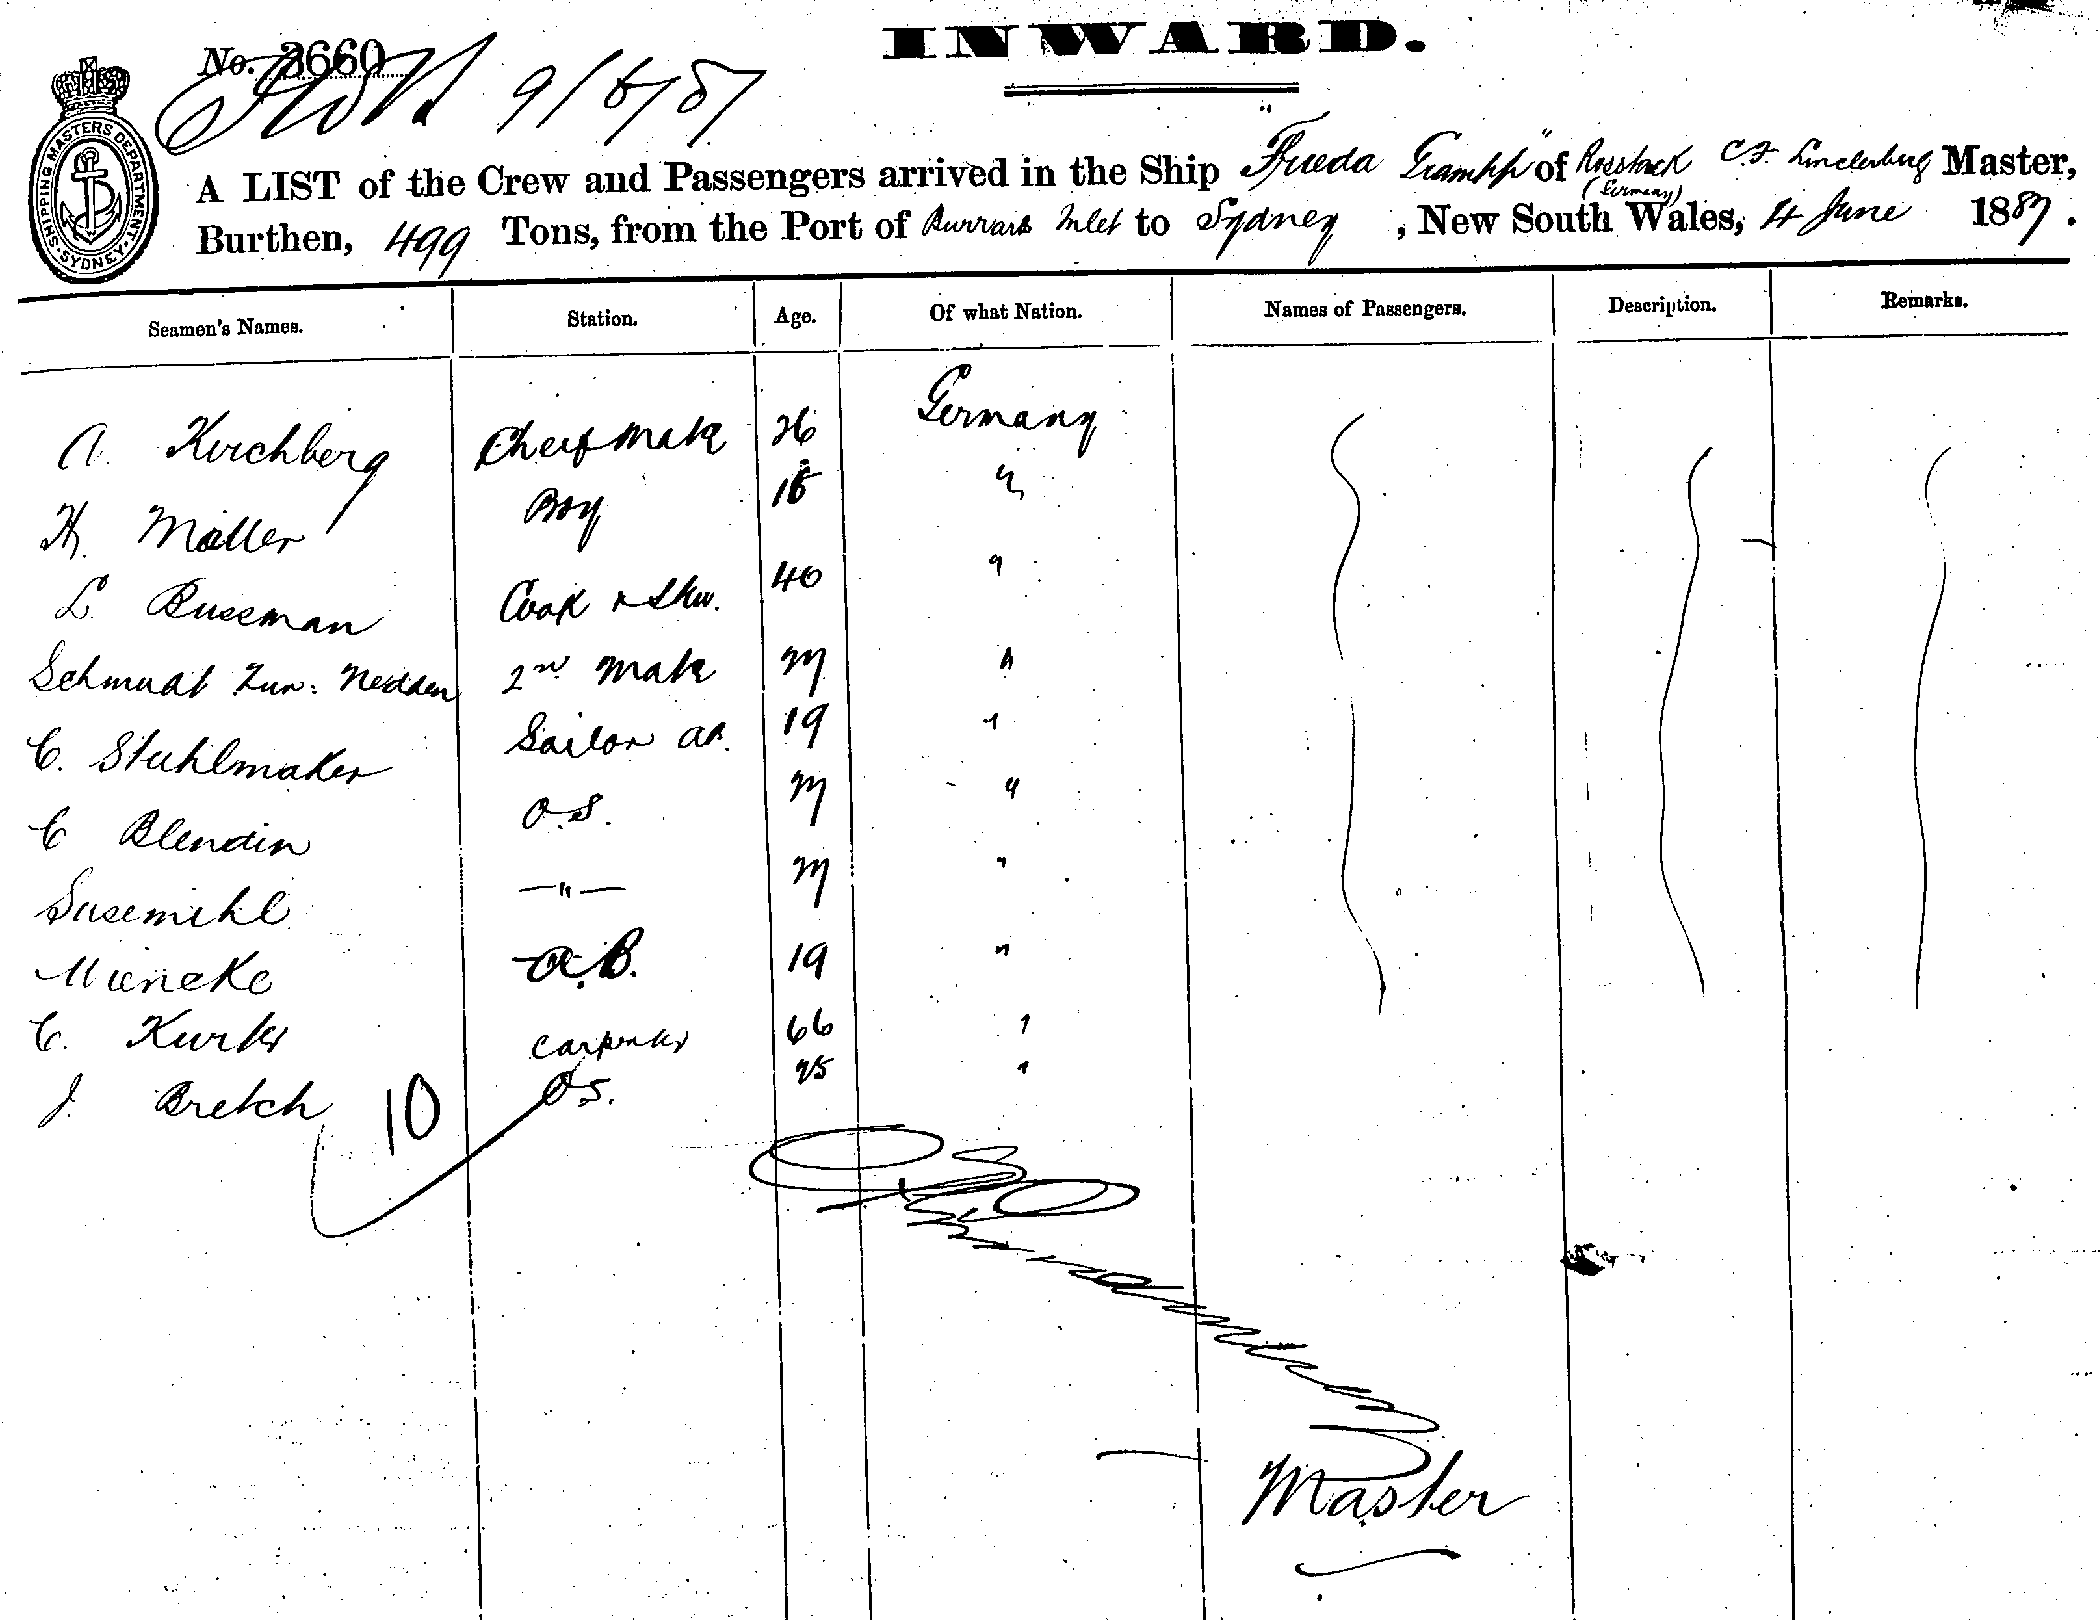 INWARD.
No. 3660
9/6/87
SHIPPING MASTERS DEPARTMENT. SYDNEY.
A LIST of the Crew and Passengers arrived in the Ship "Frieda Grampp" of Rosstock C.F. Linderberg Master,
(Germany)
Burthen, 499 Tons, from the Port of Burrard Inlet to Sydney, New South Wales, 4 June 1887.
Seamen's Names. Station. Age. Of what Nation. Names of Passengers. Description. Remarks.
A. Kirchberg Cheif Mate 26 Germany
H. Möller Boy 18 "
L Bussman Cook & Stw. 40 "
Schmidt Zur: Nedden 2nd Mate "
C. Stuhlmaker Sailor 19 "
C Blendin O.S. "
Susemihl —"— "
Mieneke A.B. 19 "
C. Kurtz carpenter 66 "
J. Bretch O.S. 25 "
10
Master